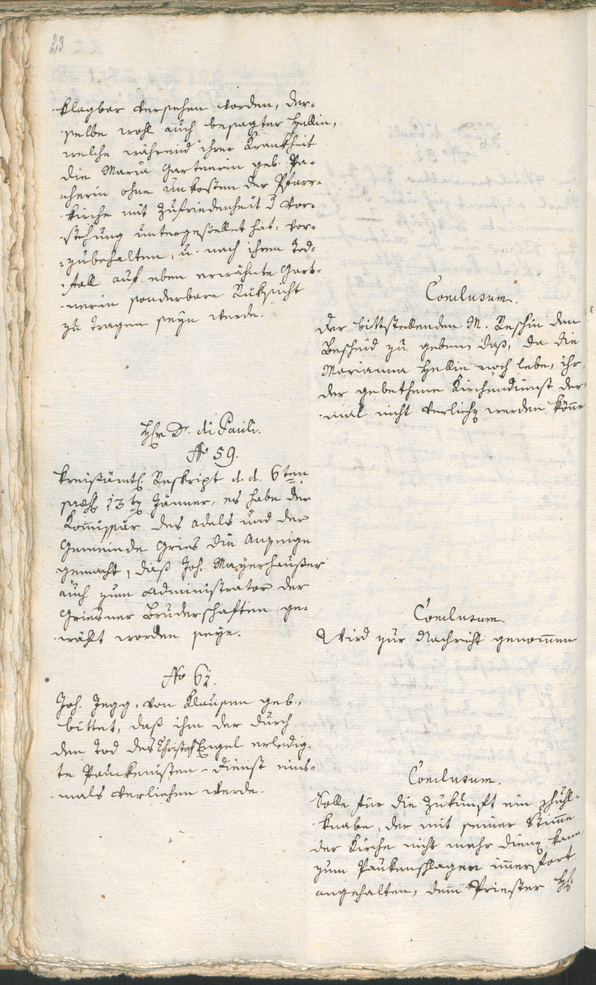 23
klagbar versehen worden, der-
selbe wohl auch besagter Hellin,
welche während ihrer Krankheit
die Maria Gartnerin geb. Pa-
cherin ohne Unkosten der Pfarr-
kirche mit Zufriedenheit d Vor-
stehung untergestellet hat, vor-
zubehalten, u. nach ihrem Tod-
fall auf eben erwähnte Gart-
nerin sonderbare Rüksicht
zu tragen seyn werde.
Conclusum.
Der bittstellenden M. Reschin den
Bescheid zu geben, daß, da die
Marianna Hellin noch lebe, ihr
der gebethene Kirchendienst der-
mal nicht verliehen werden könne
Hhr Dr. di Pauli.
No 59.
Kreisämtl. Reskript d. d. 6ten
13 Jänner, es habe der
Kommissär des Adels und der
Gemeinde Gries die Anzeige
gemacht, daß Joh. Mayerhauser
auch zum Administrator der
Griesner Bruderschaften ge-
wählt worden seye.
Conclusum.
Wird zur Nachricht genommen
No 62.
Joh. Jegg, von Klausen geb.
bittet, daß ihm der durch
den Tod des Christof Engel erledig-
te Paukenisten-Dienst
-mals verliehen werde.
Conclusum.
Solle für die Zukunft ein Schuhl-
knabe, der mit seiner Stimme
der Kirche nicht mehr dienen kann
zum Paukenschlagen immerfort
angehalten, dem Priester